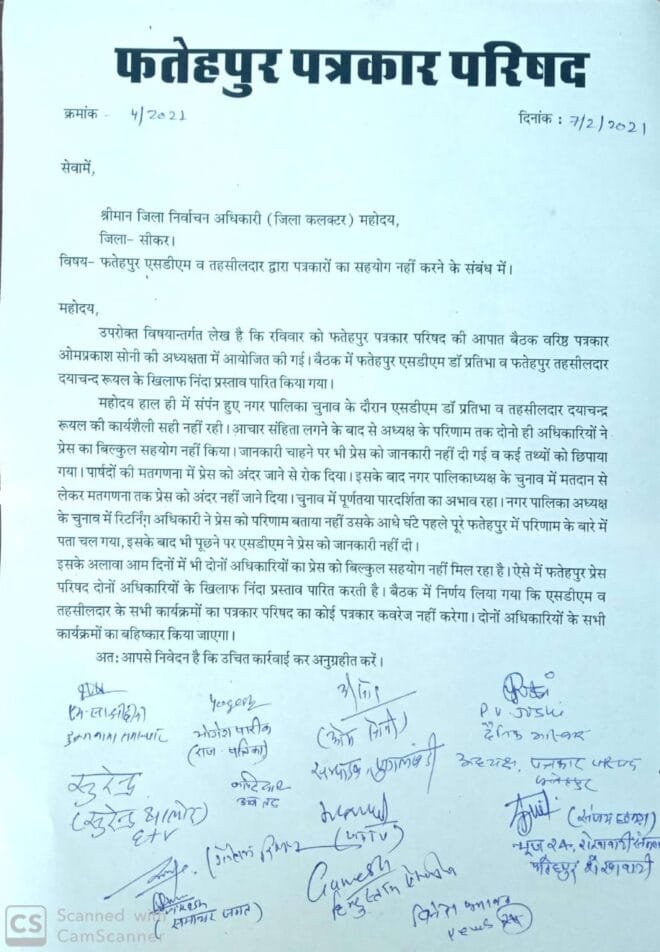 फतेहपुर पत्रकार परिषद
क्रमांक - 4/2021
दिनांक : 7/2/2021
सेवामें,
श्रीमान जिला निर्वाचन अधिकारी (जिला कलक्टर) महोदय,
जिला- सीकर।
विषय- फतेहपुर एसडीएम व तहसीलदार द्वारा पत्रकारों का सहयोग नहीं करने के संबंध में।
महोदय,
उपरोक्त विषयान्तर्गत लेख है कि रविवार को फतेहपुर पत्रकार परिषद की आपात बैठक वरिष्ठ पत्रकार
ओमप्रकाश सोनी की अध्यक्षता में आयोजित की गई। बैठक में फतेहपुर एसडीएम डॉ प्रतिभा व फतेहपुर तहसीलदार
दयाचन्द रूयल के खिलाफ निंदा प्रस्ताव पारित किया गया।
महोदय हाल ही में संपंन हुए नगर पालिका चुनाव के दौरान एसडीएम डॉ प्रतिभा व तहसीलदार दयाचन्द्र
रूयल की कार्यशैली सही नहीं रही। आचार संहिता लगने के बाद से अध्यक्ष के परिणाम तक दोनो ही अधिकारियों ने
प्रेस का बिल्कुल सहयोग नहीं किया। जानकारी चाहने पर भी प्रेस को जानकारी नहीं दी गई व कई तथ्यों को छिपाया
गया। पार्षदों की मतगणना में प्रेस को अंदर जाने से रोक दिया। इसके बाद नगर पालिकाध्यक्ष के चुनाव में मतदान से
लेकर मतगणना तक प्रेस को अंदर नहीं जाने दिया। चुनाव में पूर्णतया पारदर्शिता का अभाव रहा। नगर पालिका अध्यक्ष
के चुनाव में रिटर्निंग अधिकारी ने प्रेस को परिणाम बताया नहीं उसके आधे घंटे पहले पूरे फतेहपुर में परिणाम के बारे में
पता चल गया, इसके बाद भी पूछने पर एसडीएम ने प्रेस को जानकारी नहीं दी।
इसके अलावा आम दिनों में भी दोनों अधिकारियों का प्रेस को बिल्कुल सहयोग नहीं मिल रहा है। ऐसे में फतेहपुर प्रेस
परिषद दोनों अधिकारियों के खिलाफ निंदा प्रस्ताव पारित करती है। बैठक में निर्णय लिया गया कि एसडीएम व
तहसीलदार के सभी कार्यक्रमों का पत्रकार परिषद का कोई पत्रकार कवरेज नहीं करेगा। दोनों अधिकारियों के सभी
कार्यक्रमों का बहिष्कार किया जाएगा।
अत: आपसे निवेदन है कि उचित कार्रवाई कर अनुग्रहीत करें।
Yogesh
योगेश पारीक
(राज. पत्रिका)
P.V. Joshi
दैनिक भास्कर
अध्यक्ष, पत्रकार परिषद
फतेहपुर
सुरेन्द्र
ETV
Ganesh
(समाचार जगत)
CS Scanned with
CamScanner